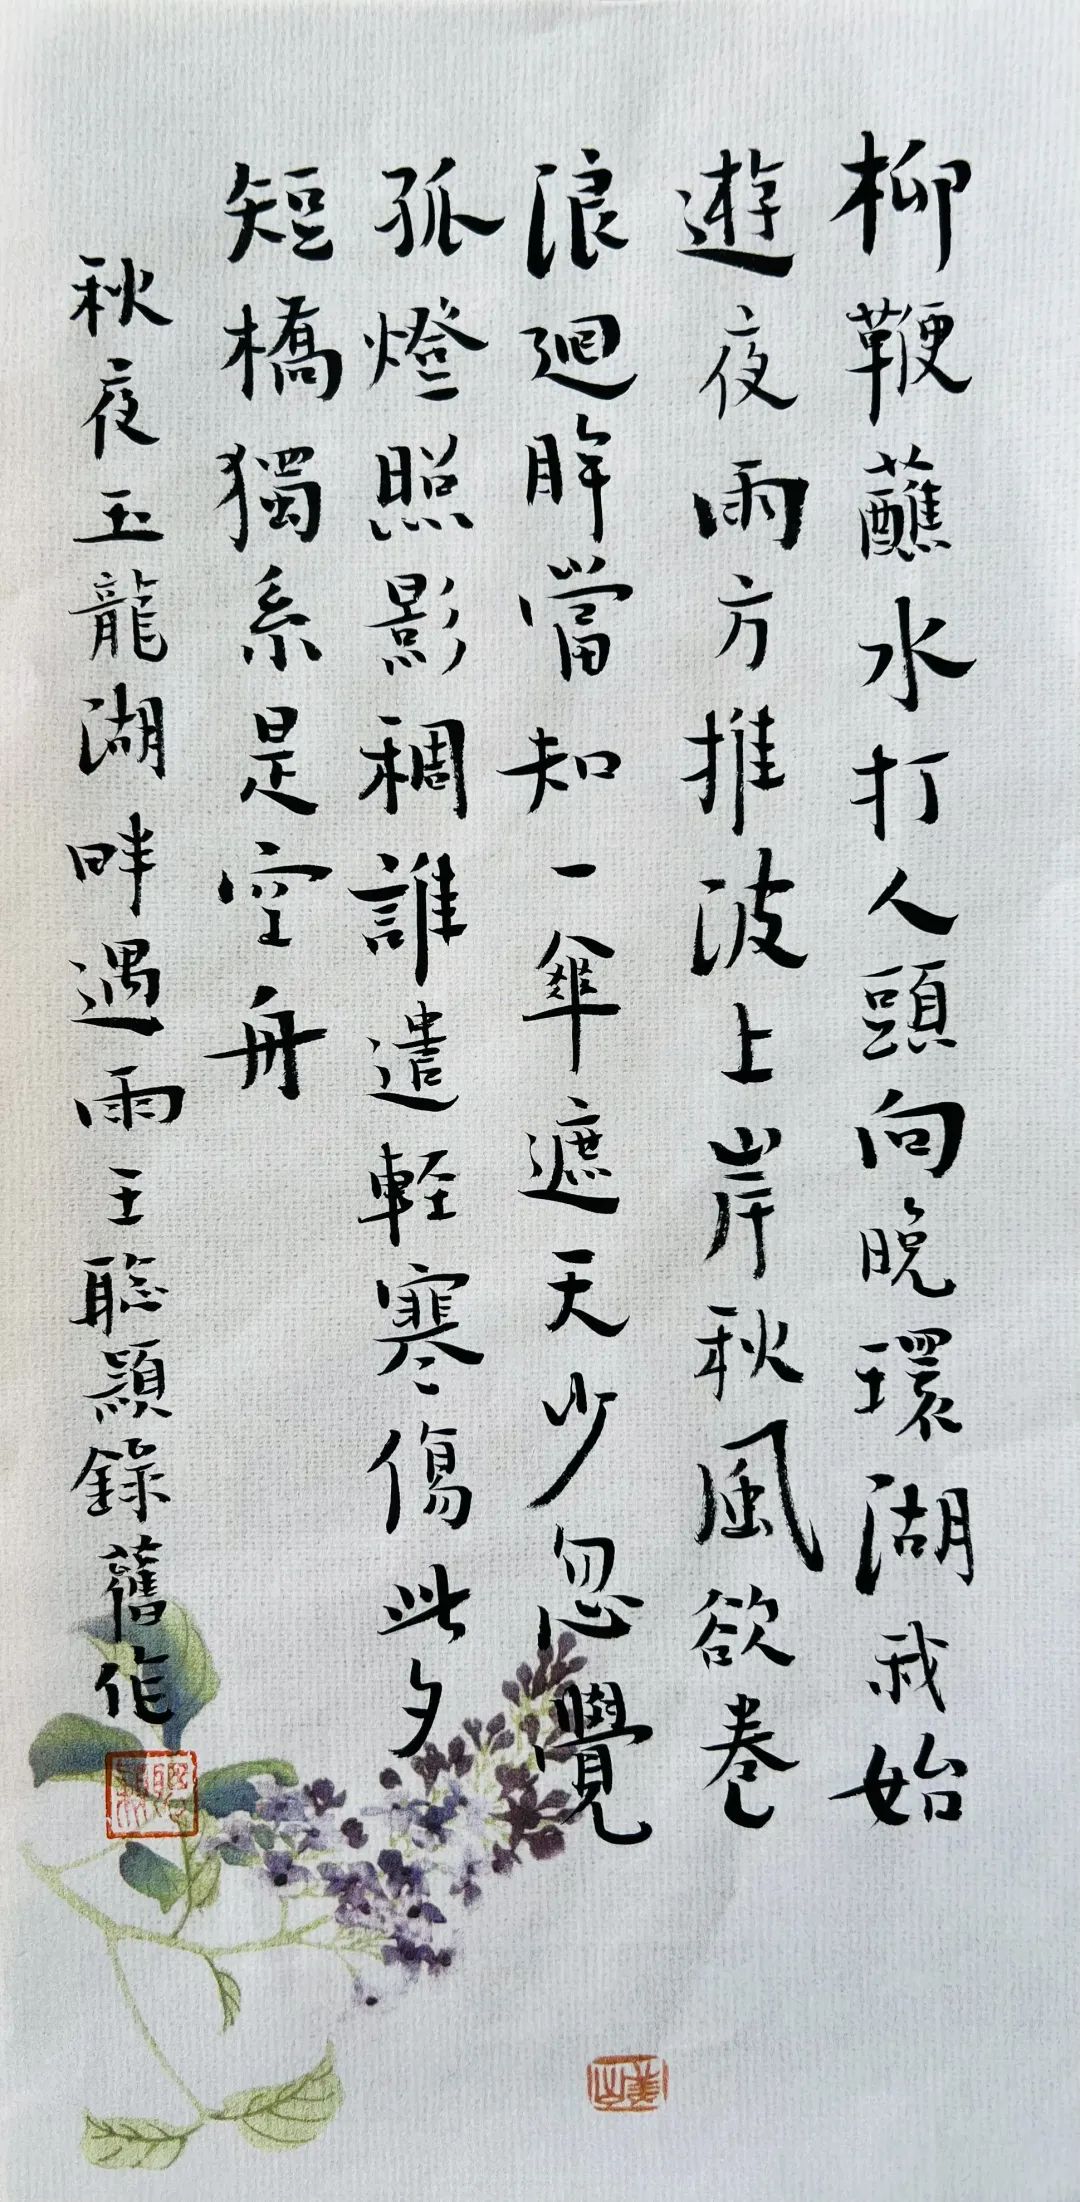 柳鞭蘸水打人頭向晚環湖我始
遊夜雨方推波上岸秋風欲卷
浪迴眸當知一傘遮天少忽覺
孤燈照影稠誰遣輕寒傷此夕
短橋獨系是空舟
秋夜玉龍湖畔遇雨王聪顥錄舊作